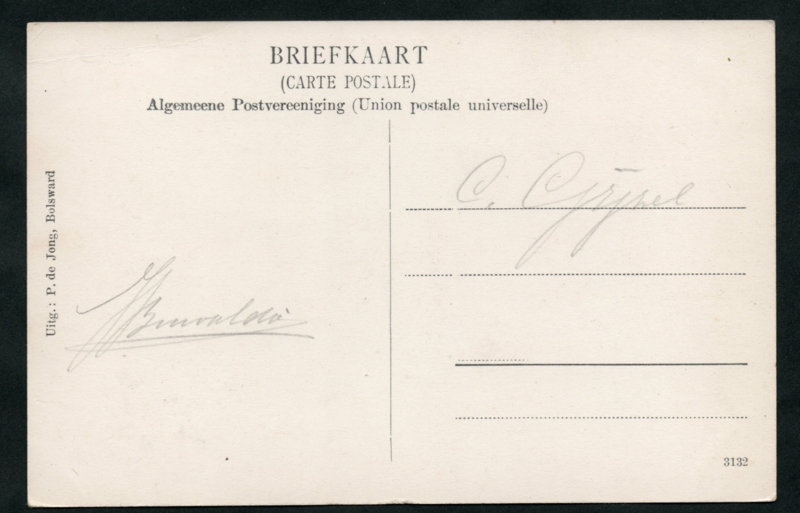 BRIEFKAART
(CARTE POSTALE)
Algemeene Postvereeniging (Union postale universelle)
Uitg.: P. de Jong, Bolsward
C.
3132